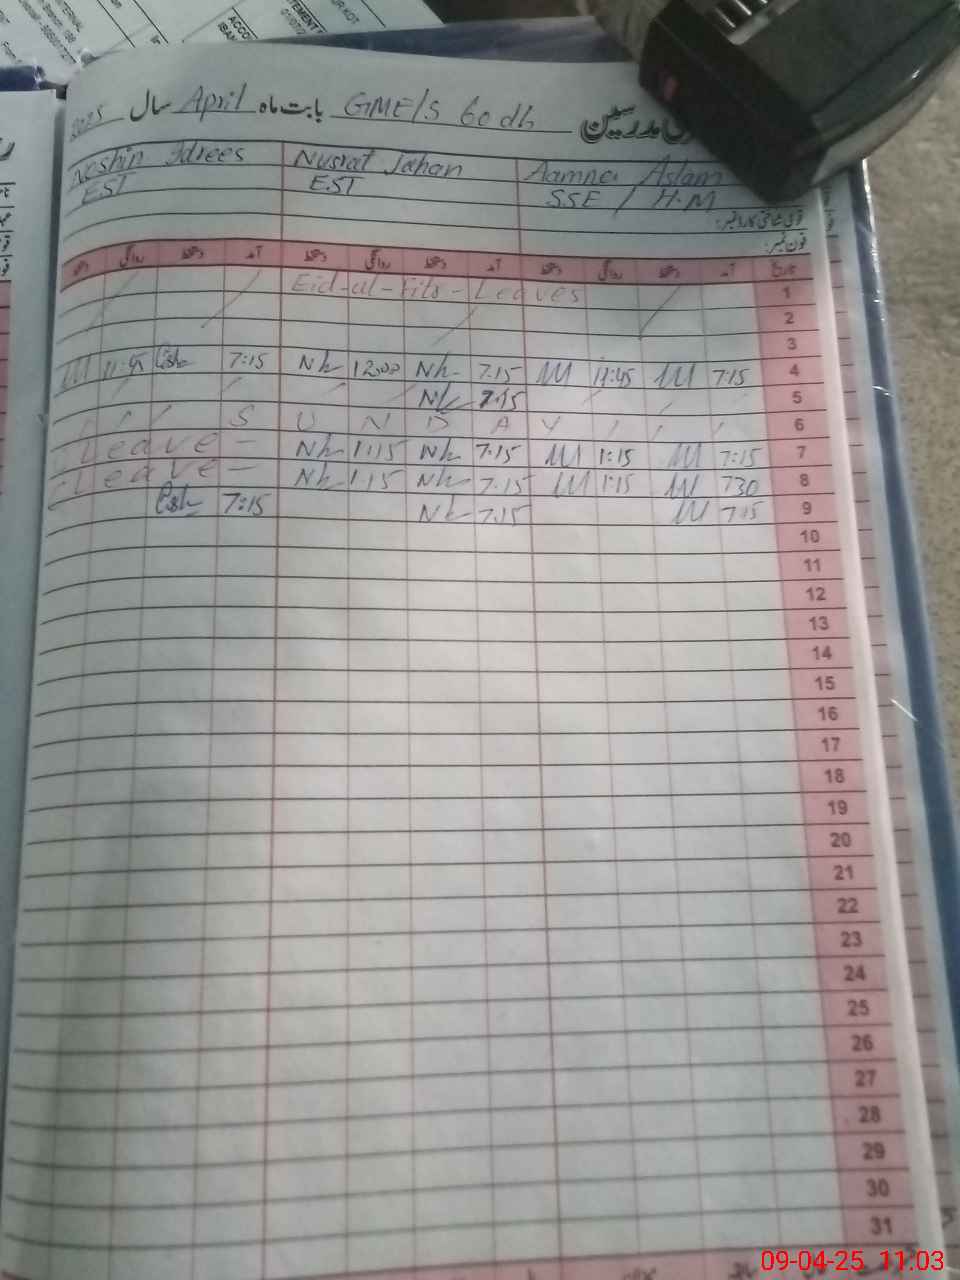 2025 سال April بابت ماہ GME/S 60 dh مدرسین
Noshin Idrees Nusrat Jahan Aamna Aslam
EST EST SSE / H.M
قومی شناختی کارڈ نمبر:
فون نمبر:
دستخط روانگی دستخط آمد دستخط روانگی دستخط آمد دستخط روانگی دستخط آمد تاریخ
Eid-ul-Fitr-Leaves 1
2
3
11:45 7:15 Nh 12:00 Nh 7:15 11:45 7:15 4
Nh 7:15 5
S U N D A Y 6
Leave - Nh 1:15 Nh 7:15 1:15 7:15 7
Leave - Nh 1:15 Nh 7:15 1:15 730 8
7:15 Nh 7:15 7:15 9
10
11
12
13
14
15
16
17
18
19
20
21
22
23
24
25
26
27
28
29
30
31
09-04-25 11:03